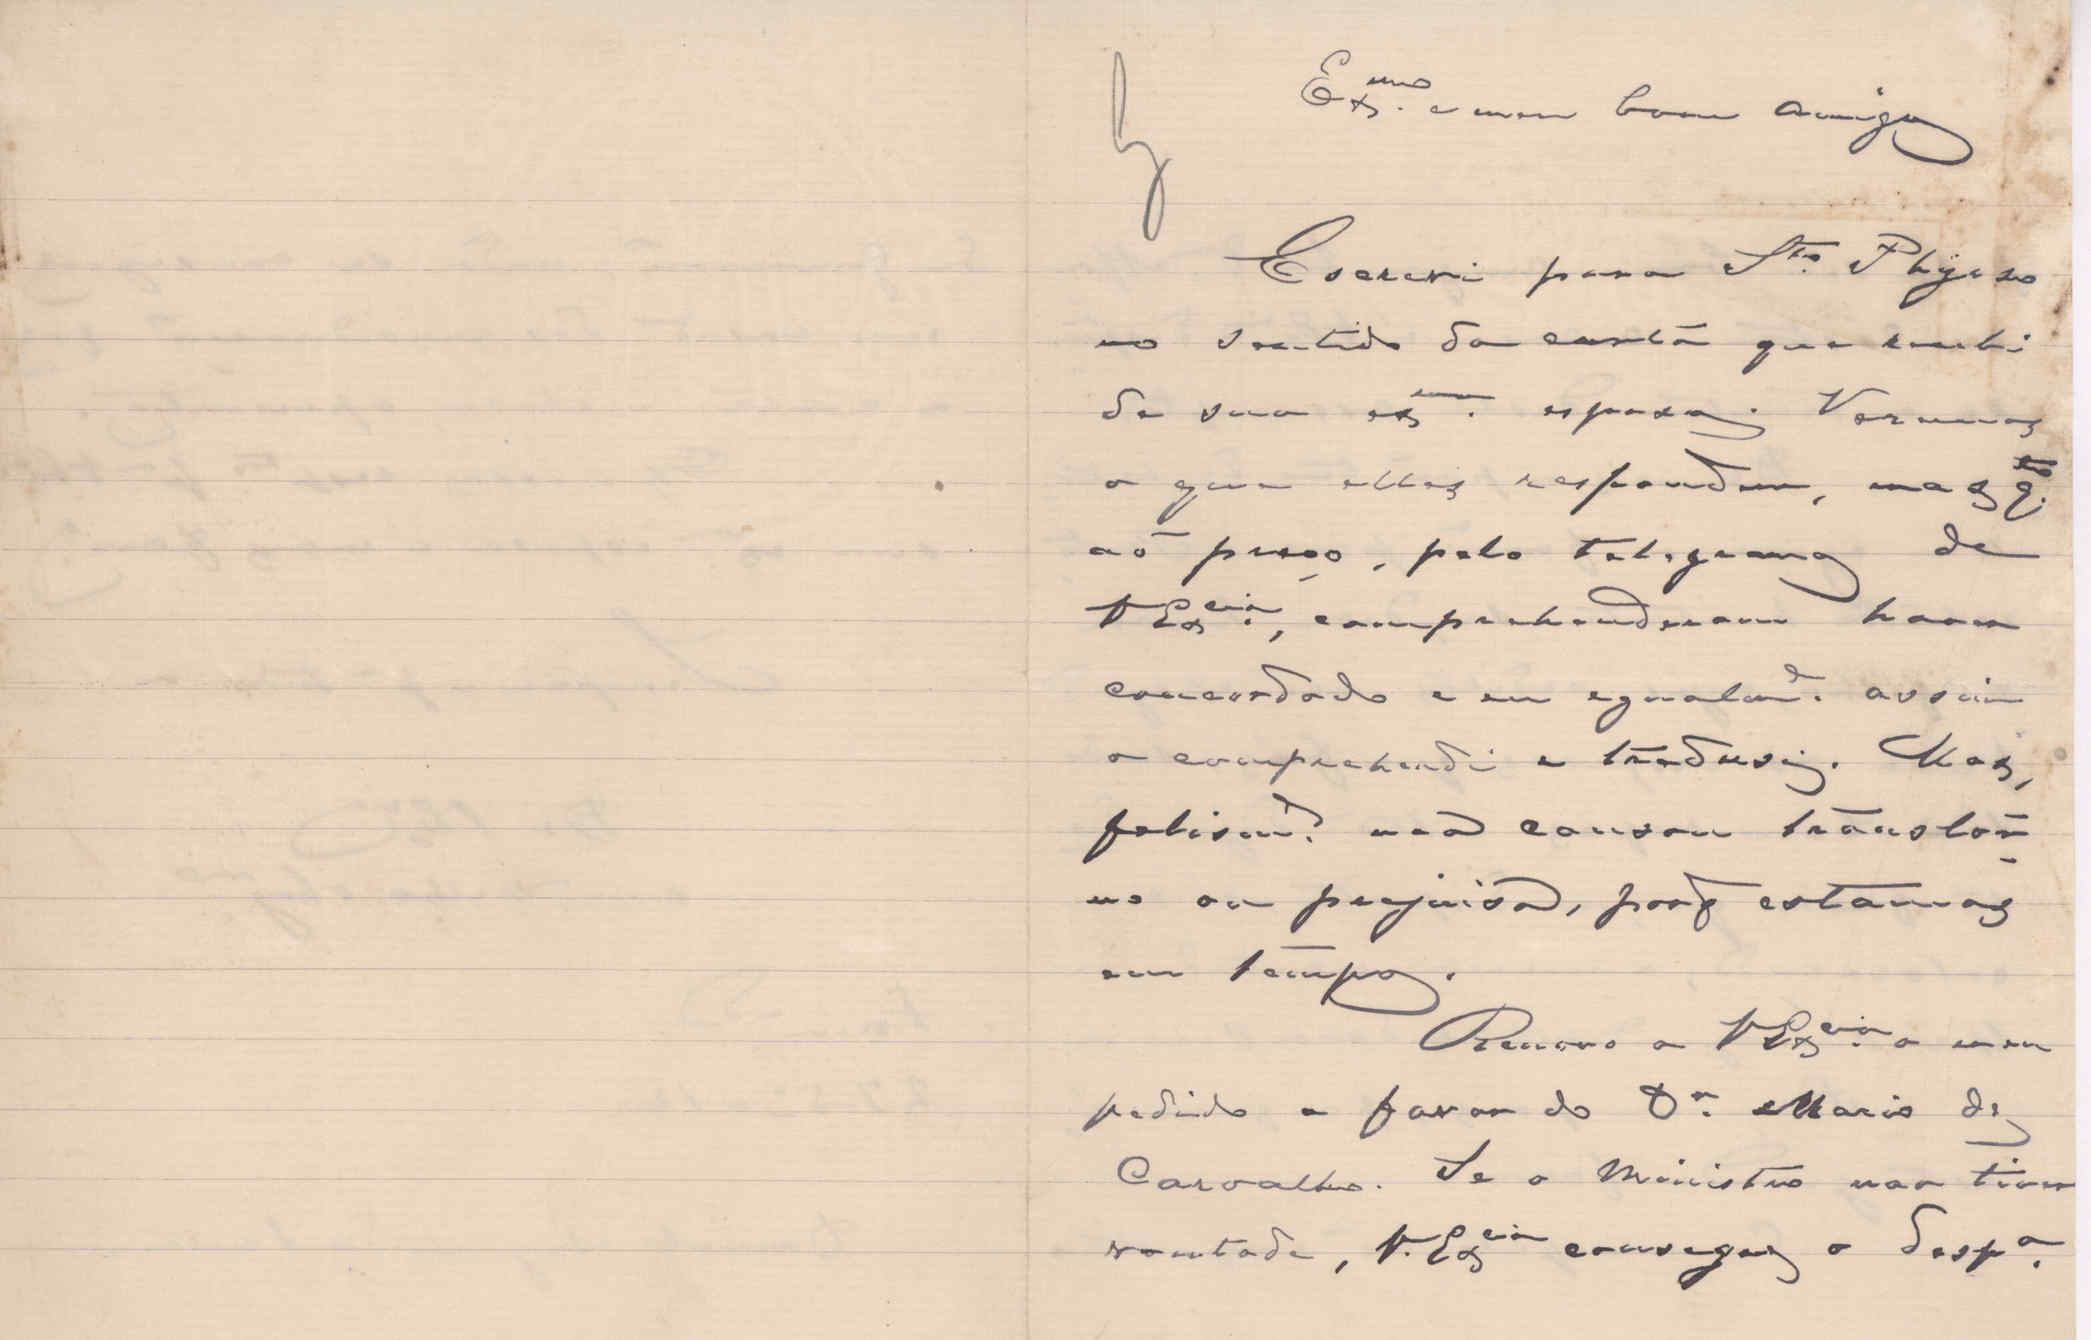 Ex.mo e meu bom amigo
Escrevi para Sto. Thyrso
no sentido da carta que recebi
de sua ex.ma esposa. Veremos
o que elles respondem, mas q.to
aó preço, pelo telegrama de
V Ex.cia, comprehenderam haver
concordado e eu egualm.e assim
o comprehendi e tradusi. Mas,
felism.e não causou transtor-
no ou prejuiso, pois estamos
em tempo.
Renovo a V Ex.cia o meu
pedido a favor do Dr. Mario de
Carvalho. Se o Ministro não tiver
vontade, V. Ex.cia consegue o desp.o